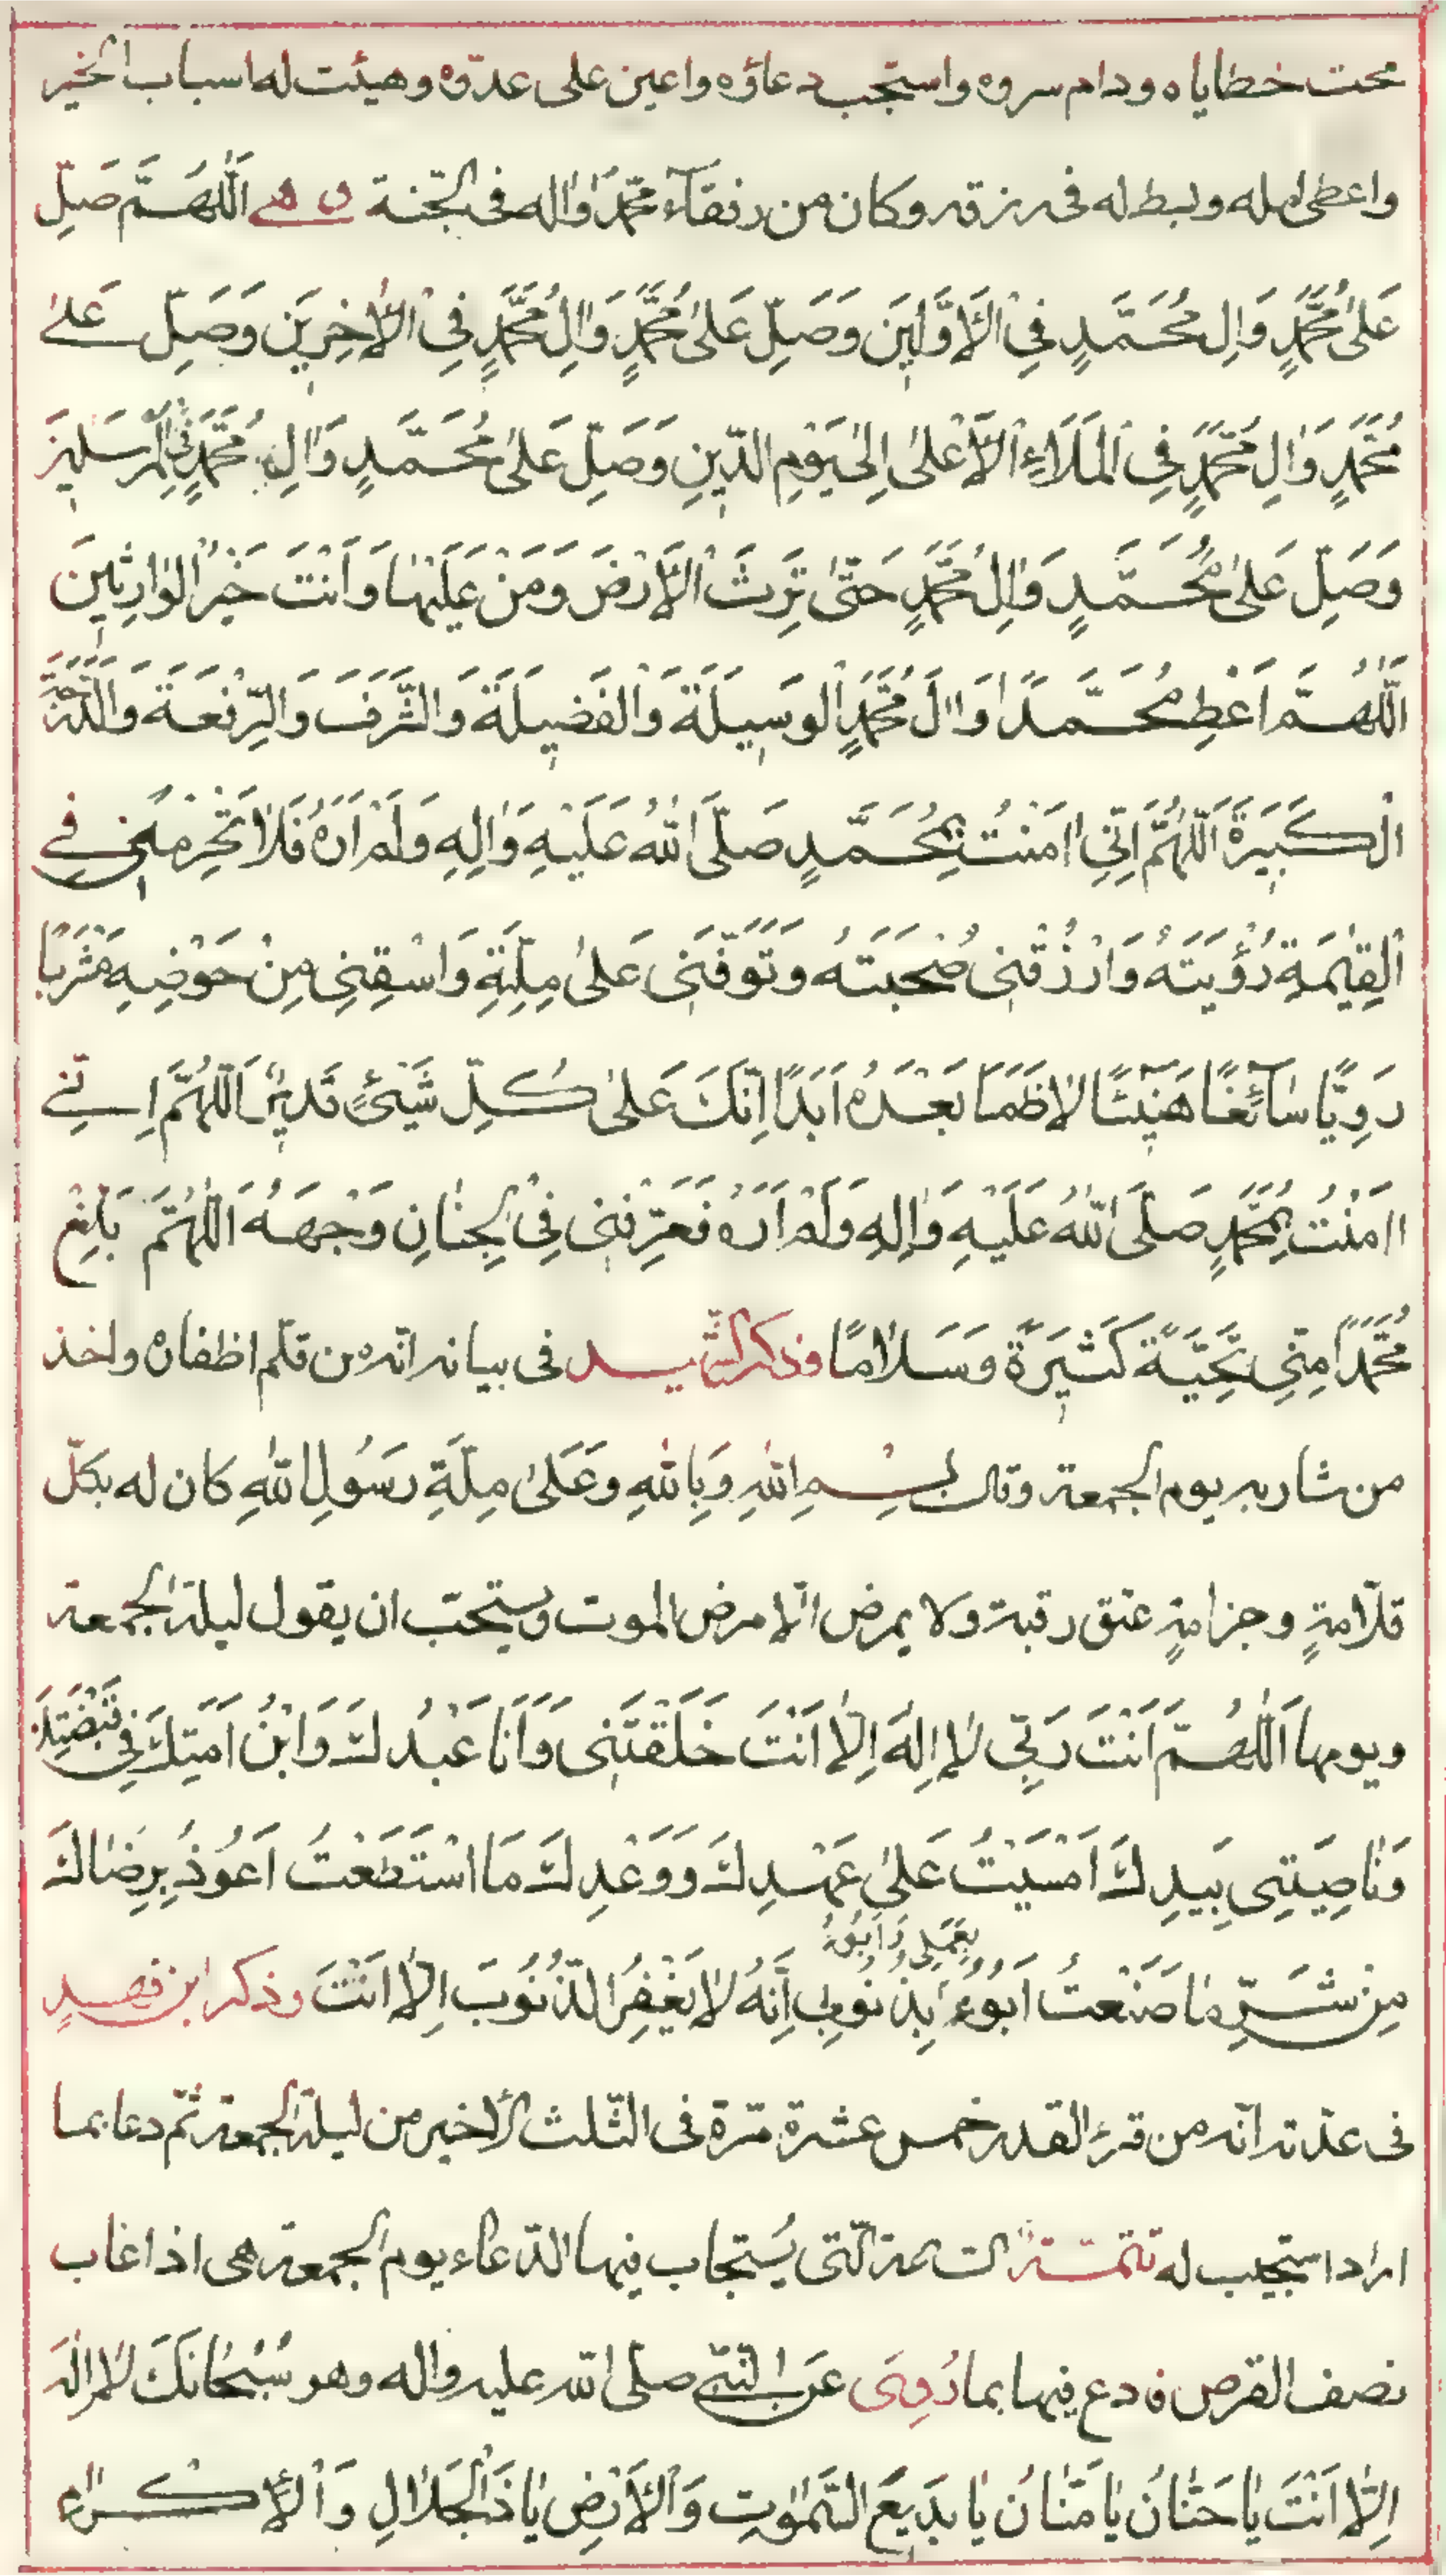 محت خطاياه ودام سروه واستجب دعاؤه واعين على عدّوه وهيئت له اسباب الخير
واعطى امله وبسط له فى رزقه وكان من رفقآء محمّد وٰاله فى الجّنة و هى اَللّٰهُمَّ صَلِّ
عَلىٰ مُحَمَّدٍ وَاٰلِ مُحَمَّدٍ فِى الْاَوَّلينَ وَصَلِّ عَلىٰ مُحَمَّدٍ وَاٰلِ مُحَمَّدٍ فِى الْاٰخِرينَ وَصَلِّ عَلىٰ
مُحَمَّدٍ وَاٰلِ مُحَمَّدٍ فِى الْمَلَاءِ الْاَعْلىٰ اِلىٰ يَوْمِ الدّينِ وَصَلِّ عَلىٰ مُحَمَّدٍ وَاٰلِ مُحَمَّدٍ فِى الْمُرْسَلينَ
وَصَلِّ عَلىٰ مُحَمَّدٍ وَاٰلِ مُحَمَّدٍ حَتّىٰ تَرِثَ الْاَرْضَ وَمَنْ عَلَيْهٰا وَاَنْتَ خَيْرُ الْوٰارِثينَ
اَللّٰهُمَّ اَعْطِ مُحَمَّدًا وَاٰلَ مُحَمَّدٍ الْوَسيلَةَ وَالْفَضيلَةَ وَالشَّرَفَ وَالرِّفْعَةَ وَالدَّرَجَةَ
الْكَبيرَةَ اَللّٰهُمَّ اِنِّى اٰمَنْتُ بِمُحَمَّدٍ صَلَّى اللّٰهُ عَلَيْهِ وَاٰلِهِ وَلَمْ اَرَهُ فَلاٰ تَحْرِمْنى فِى
الْقِيٰمَةِ رُؤْيَتَهُ وَارْزُقْنى صُحْبَتَهُ وَتَوَفَّنى عَلىٰ مِلَّتِهِ وَاسْقِنِى مِنْ حَوْضِهِ مَشْرَبًا
رَوِيًّا سٰآئِغًا هَنيٓئًا لاٰ ظَمَاَ بَعْدَهُ اَبَدًا اِنَّكَ عَلىٰ كُلِّ شَيْئٍ قَديرٌ اَللّٰهُمَّ اِنّى
اٰمَنْتُ بِمُحَمَّدٍ صَلَّى اللّٰهُ عَلَيْهِ وَاٰلِهِ وَلَمْ اَرَهُ فَعَرِّفْنى فِى الْجِنٰانِ وَجْهَهُ اَللّٰهُمَّ بَلِّغْ
مُحَمَّدًا مِنّى تَحِيَّةً كَثيرَةً وَسَلاٰمًا وذكر الشّهيد فى بيانه انّه من قلّم اظفاره واخذ
من شاربه يوم الجمعة وقال بِسْمِ اللّٰهِ وَبِاللّٰهِ وَعَلىٰ مِلَّةِ رَسُولِ اللّٰهِ كان له بكلّ
قلّامةٍ وجزامةٍ عتق رقبة ولا يمرض الّا مرض الموت ويستحّب ان يقول ليلة الجمعة
ويومها اَللّٰهُمَّ اَنْتَ رَبّى لاٰ اِلٰهَ اِلّاٰ اَنْتَ خَلَقْتَنى وَاَنَا عَبْدُكَ وَابْنُ اَمَتِكَ فى قَبْضَتِكَ
وَنٰاصِيَتى بِيَدِكَ اَمْسَيْتُ عَلىٰ عَهْدِكَ وَوَعْدِكَ مَا اسْتَطَعْتُ اَعُوذُ بِرِضٰاكَ
بِعَمَلى وَاَبُوءُ
مِنْ شَرِّ مٰا صَنَعْتُ اَبُوءُ بِذُنُوبى اِنَّهُ لاٰ يَغْفِرُ الذُّنُوبَ اِلّاٰ اَنْتَ وذكر ابن فهدٍ
فى عدّته انّه من قرء القدر خمس عشرة مّرة فى الثّلث الأخير من ليلة الجمعة ثّم دعا بما
اراد استجيب له تتمّة السّاعة الّتى يُستجاب فيها الدّعاء يوم الجمعة هى اذا غاب
نصف القرص فادع فيها بما رُوِىَ عَن النّبىّ صلّى اللّه عليه واله وهو سُبْحٰانَكَ لاٰ اِلٰهَ
اِلّاٰ اَنْتَ يٰا حَنّٰانُ يٰا مَنّٰانُ يٰا بَديعَ السَّمٰوٰتِ وَالْاَرْضِ يٰا ذَا الْجَلاٰلِ وَالْاِكْرٰامِ